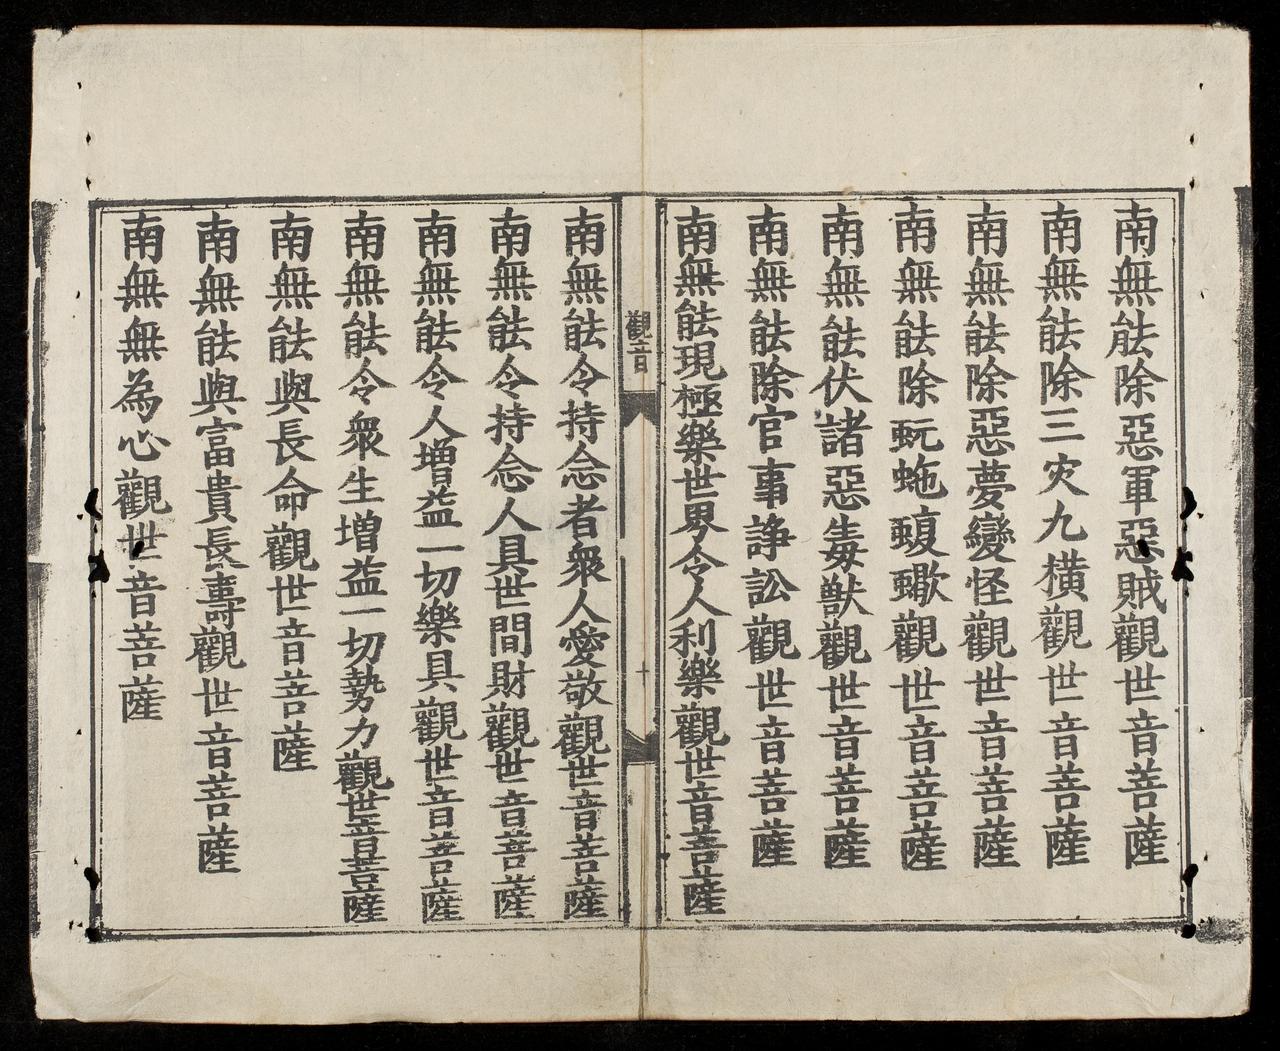 南無能除惡軍惡賊觀世音菩薩
南無能除三灾九橫觀世音菩薩
南無能除惡夢變怪觀世音菩薩
南無能除蚖虵蝮蠍觀世音菩薩
南無能伏諸惡毒獸觀世音菩薩
南無能除官事諍訟觀世音菩薩
南無能現極樂世界令人利樂觀世音菩薩
觀音
十
南無能令持念者衆人愛敬觀世音菩薩
南無能令持念人具世間財觀世音菩薩
南無能令人增益一切樂具觀世音菩薩
南無能令衆生增益一切勢力觀世音菩薩
南無能與長命觀世音菩薩
南無能與富貴長壽觀世音菩薩
南無無為心觀世音菩薩